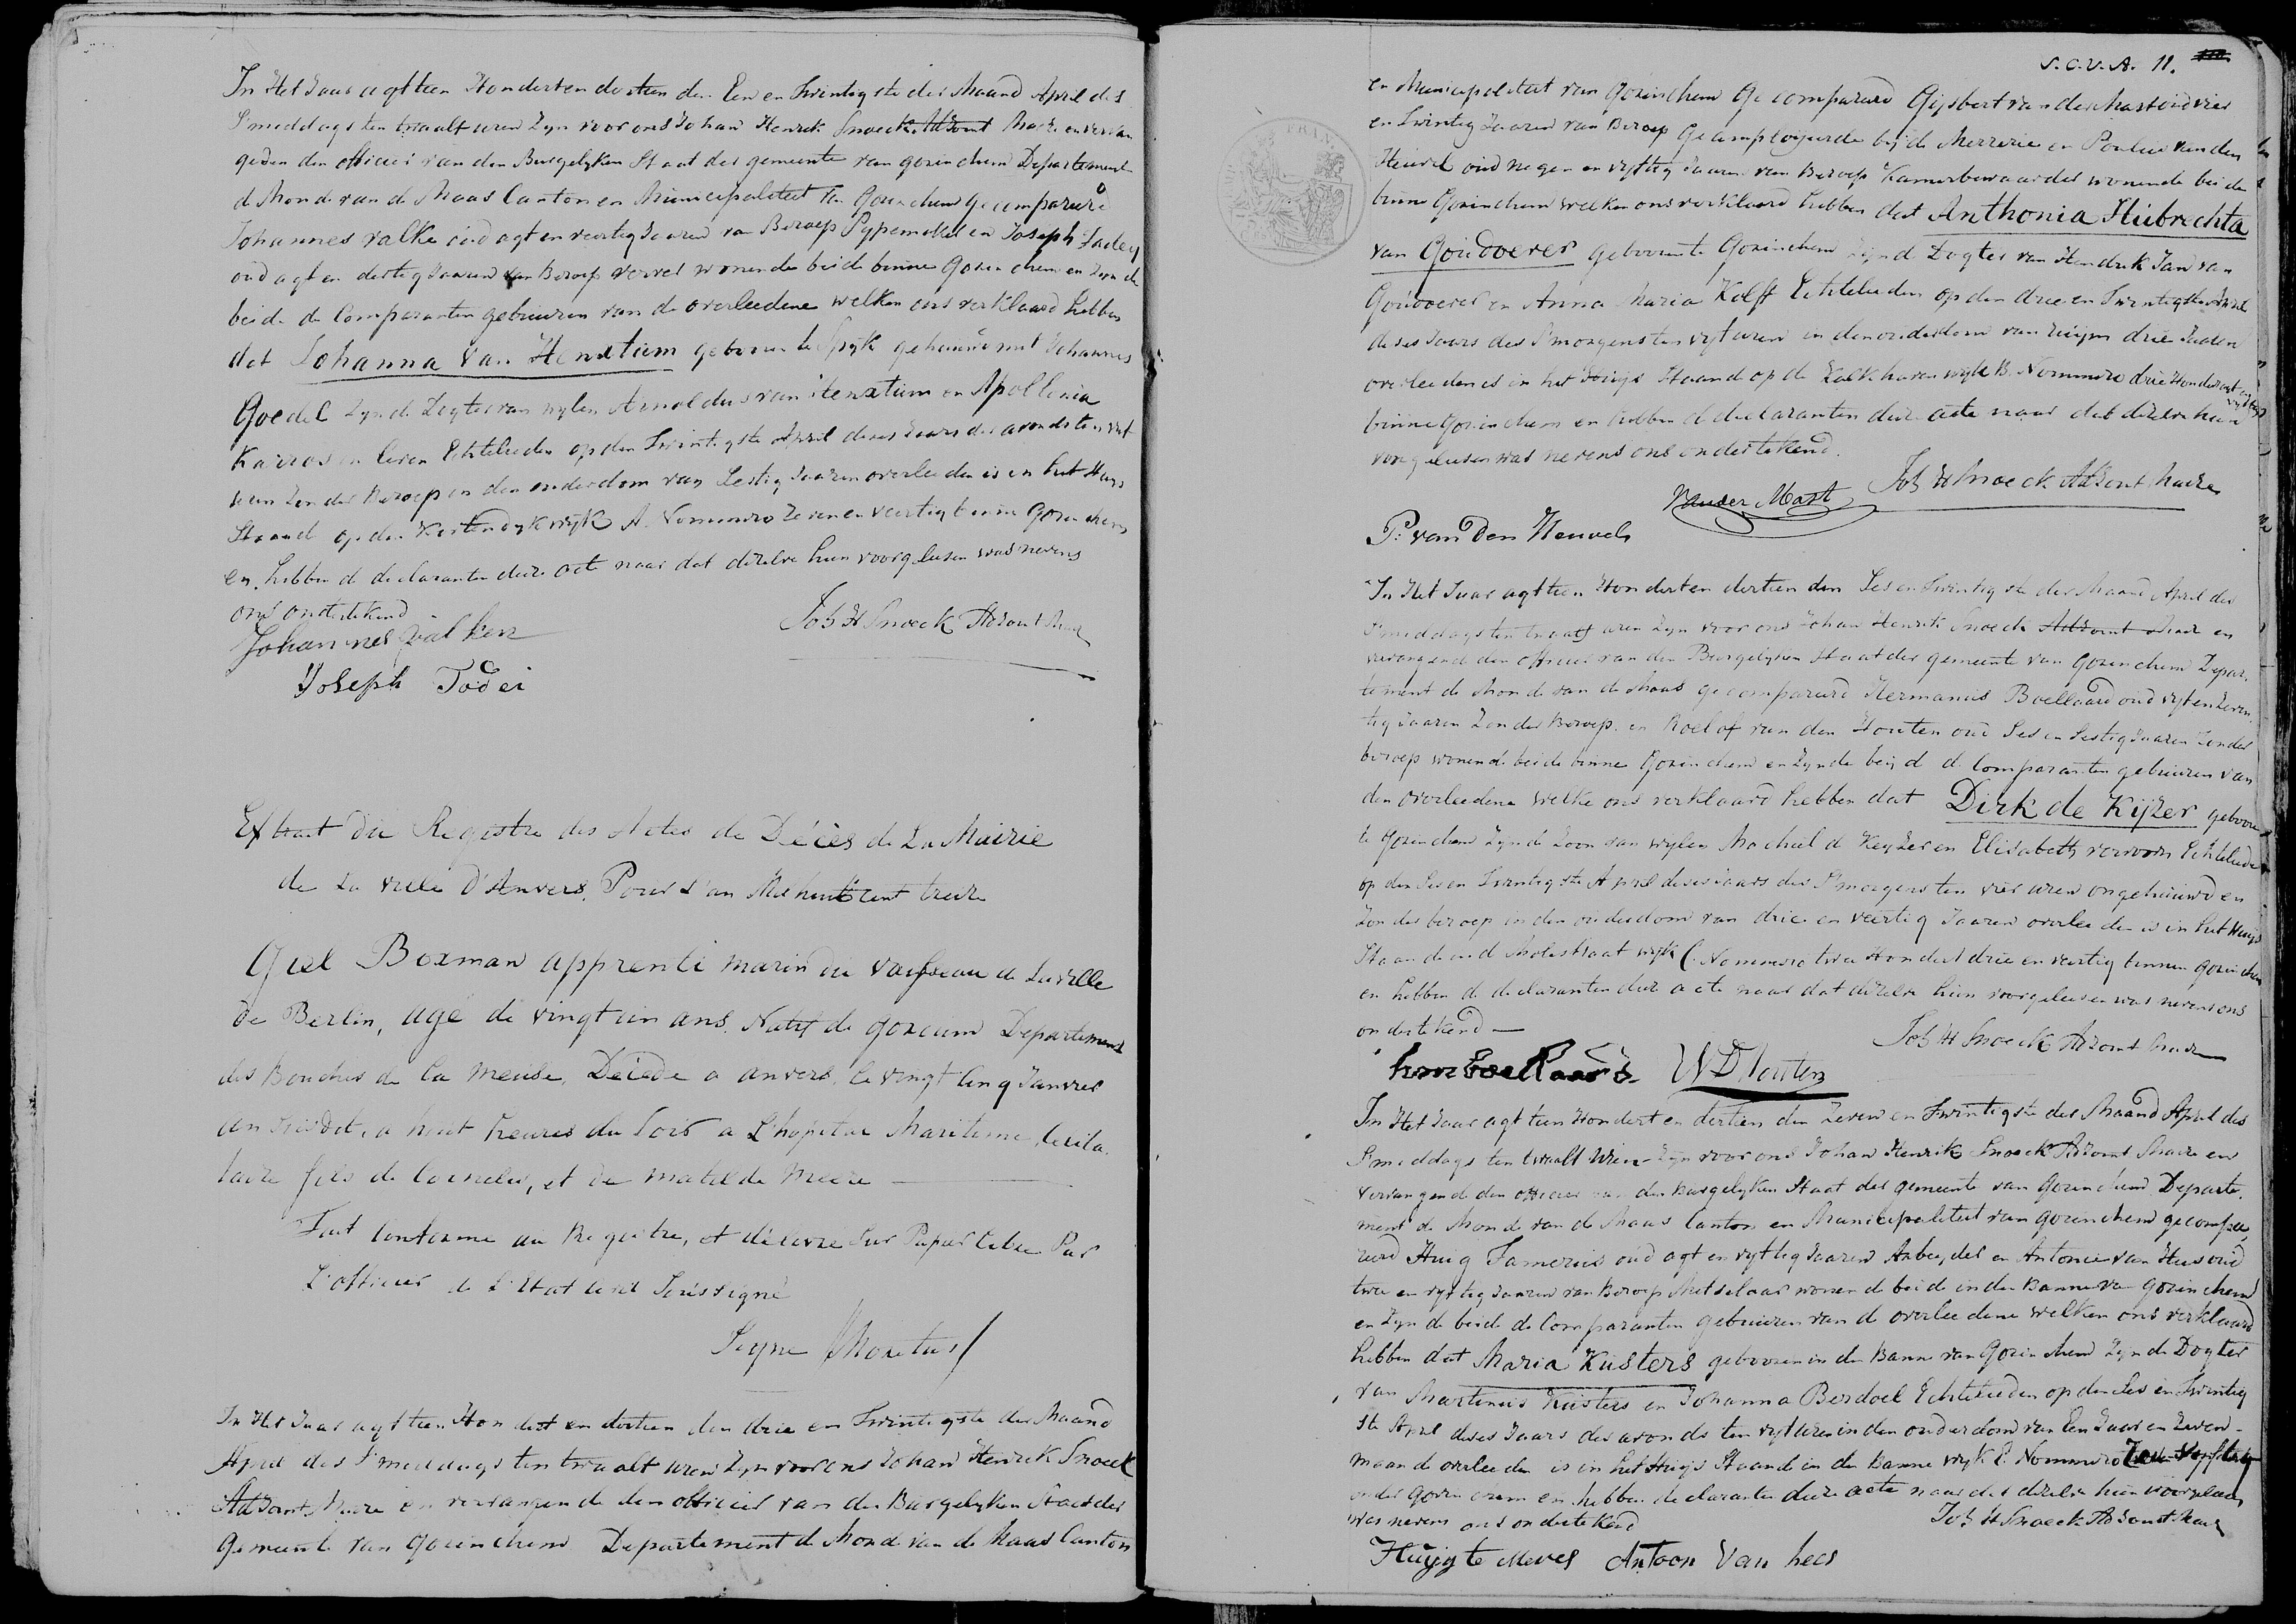 In Het Jaar agttien Honderten dertien den Een en Twintigste der Maand April des
Smiddags ten twaalf uren Zyn voor ons Johan Henrik Snoeck Adjoint Maire en vervan
genden den officier van den Burgelyken Staat der gemeente van gorinchem Departement
d Mond van de Maas Canton en Municipaliteit van Gorinchem gecompareerd
Johannes valke oud agt en veertig Jaaren van Beroep Pypemaker en Joseph
oud agt en dertig Jaaren van Beroep verver wonende beide binne Gorinchem en Zynde
beide de Comparanten gebuuren van de overleedene welken ons verklaard hebben
dat Johanna Van Henxtum geboren te Spyk gehuuwd met Johannes
Goedel Zynde Dogter van wylen Arnoldus van Henxtum en Apollonia
Kairos in leven Echtelieden op den Twintigste April deses Jaars des avonds ten
uren Zonder Beroep in den ouderdom van Sestig Jaaren overleeden is in het Huys
Staande op den Kortendyk wyk A. Nommero Zeven en veertig binne Gorinchem
en hebben d declaranten deze acte naar dat dezelve hun voorgeleesen was nevens
ons ondertekend
Johannes valken Joh H Snoeck Adjoint Maire
Joseph Todei
Extrait du Registre des Actes de Décès de La Mairie
de La ville D'Anvers, Pour L'an Mil huit Cent treize
Giel Boxman apprenti marin du vaisseau de La ville
de Berlin, agé de vingt un ans. Natif de gorcum Departement
des Bouches de la Meuse, Décédé a anvers, le vingt Cinq Janvier
an susdit, a huit heures du Soir a L'hopital Maritime, Celiba
taire fils de Cornelis, et de matilde Meere
Fait Conforme au Registre, et délivré Sur Papier libre Par
L'officier de L'Etat Civil Soussigné
Signe Moretus
In Het Jaar agttien Hondert en dertien den drie en Twintigste der Maand
April des Smiddags ten twaalf uren Zyn voor ons Johan Henrik Snoeck
Adjoint Maire en vervangende den officier van den Burgelyken Staat der
gemeente van gorinchem Departement de Mond van de Maas Canton
S.C.V.A. 11.
en Municipaliteit van Gorinchem Gecompareerd Gijsbert van der Mast oud vier
en Twintig Jaaren van Beroep Geemployeerde bij de Merrerie en Poulus van den
Heuvel oud negen en vyftig Jaaren van Beroep Kamerbewaarder wonende beide
binne Gorinchem welken ons verklaard hebben dat Anthonia Hubrechta
van Goudoever geboren te Gorinchem Zijnd Dogter van Hendrik Jan van
Goudoever en Anna Maria Kolff Echtelieden op den drie en Twintigste April
deses Jaars des Smorgens ten vyf uren in den ouderdom van ruijm drie Jaaren
overleeden is in het Huijs Staande op de Kalkhaven wyk B. Nommero drie Hondert
binne Gorinchem en hebben d declaranten deze acte naar dat dezelve hun
voorgeleesen was nevens ons ondertekend.
Vander Mast Joh H Snoeck Adjoint Maire
P: van den Heuvel
In Het Jaar agttien Hondert en dertien den Ses en Twintigste der Maand April des
Smiddags ten twaalf uren Zyn voor ons Johan Henrik Snoeck Adjoint Maire en
vervangend den officier van den Burgelyken Staat der gemeente van Gorinchem Depar
tement de Mond van de Maas gecompareerd Hermanus Boellaard oud vyf en Zeven
tig Jaaren Zonder Beroep en Roelof van den Houten oud Ses en Sestig Jaaren Zonder
beroep wonende beide binne Gorinchem en Zynde beijd d Comparanten gebuuren van
den overleedene welke ons verklaard hebben dat Dirk de Kijzer geboren
te gorinchem Zynde Zoon van wylen Machiel d Keyzer en Elisabeth vervoorn Echtelieden
op den Ses en Twintigste April deses jaars des Smorgens ten vier uren ongehuuwd en
Zonder beroep in den ouderdom van drie en veertig Jaaren overleeden is in het Huijs
Staande in d Molestraat wyk C. Nommero twee Hondert drie en veertig binnen Gorinchem
en hebben de declaranten deze acte naar dat dezelve hun voorgeleesen was nevens ons
ondertekend
Joh H Snoeck Adjoint Maire
hm: boellaard. VD Houten
In Het Jaar agttien Hondert en dertien den Zeven en Twintigste der Maand April des
Smiddags ten twaalf Uren Zyn voor ons Johan Henrik Snoeck Adjoint Maire en
vervangend den officier van den Burgelyken Staat der gemeente van Gorinchem Departe
ment de Mond van de Maas Canton en Municipaliteit van gorinchem gecompa
reerd Huig Tamerus oud agt en vyftig Jaaren Arbeyder en Antonie van Hees oud
twee en vyftig Jaaren van Beroep Metselaar wonen d beide in den Banne van Gorinchem
en Zyn d beide de Comparanten gebuuren van d overleedene welken ons verklaard
hebben dat Maria Kusters gebooren in den Banne van Gorinchem Zyn de Dogter
van Martinus Kusters en Johanna Berdoel Echtelieden op den Ses en Twintig
ste April deses Jaars des avonds ten vyf uren in den ouderdom van Een Jaar en Zeven
maande overleeden is in het Huijs Staande in den Banne wyk E. Nommero
onder Gorinchem en hebben de declaranten deze acte naar dat dezelve hun voorgeleesen
was nevens ons ondertekend Joh H Snoeck Adjoint Maire
Huijg te Merel Antoon Van hees